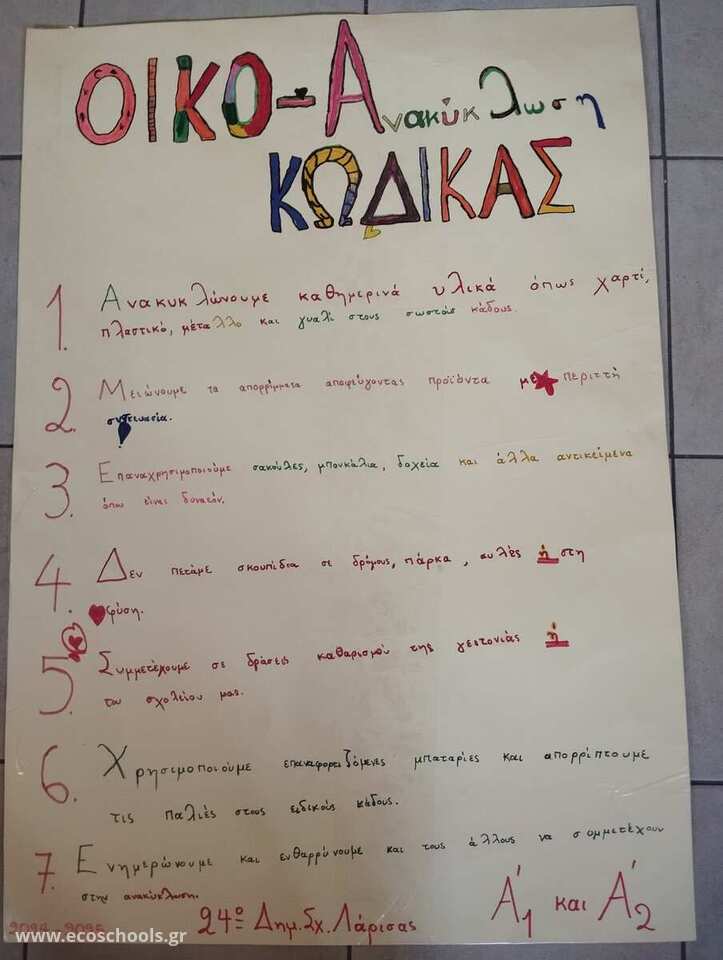 ΟΙΚΟ-Ανακύκλωση
ΚΩΔΙΚΑΣ
1. Ανακυκλώνουμε καθημερινά υλικά όπως χαρτί,
πλαστικό, μέταλλο και γυαλί στους σωστούς κάδους.
2. Μειώνουμε τα απορρίμματα αποφεύγοντας προϊόντα με περιττή
συσκευασία.
3. Επαναχρησιμοποιούμε σακούλες, μπουκάλια, δοχεία και άλλα αντικείμενα
όπου είναι δυνατόν.
4. Δεν πετάμε σκουπίδια σε δρόμους, πάρκα, αυλές ή στη
φύση.
5. Συμμετέχουμε σε δράσεις καθαρισμού της γειτονιάς ή
του σχολείου μας.
6. Χρησιμοποιούμε επαναφορτιζόμενες μπαταρίες και απορρίπτουμε
τις παλιές στους ειδικούς κάδους.
7. Ενημερώνουμε και ενθαρρύνουμε και τους άλλους να συμμετέχουν
στην ανακύκλωση.
2024-2025 24ο Δημ. Σχ. Λάρισας Α'1 και Α'2
www.ecoschools.gr